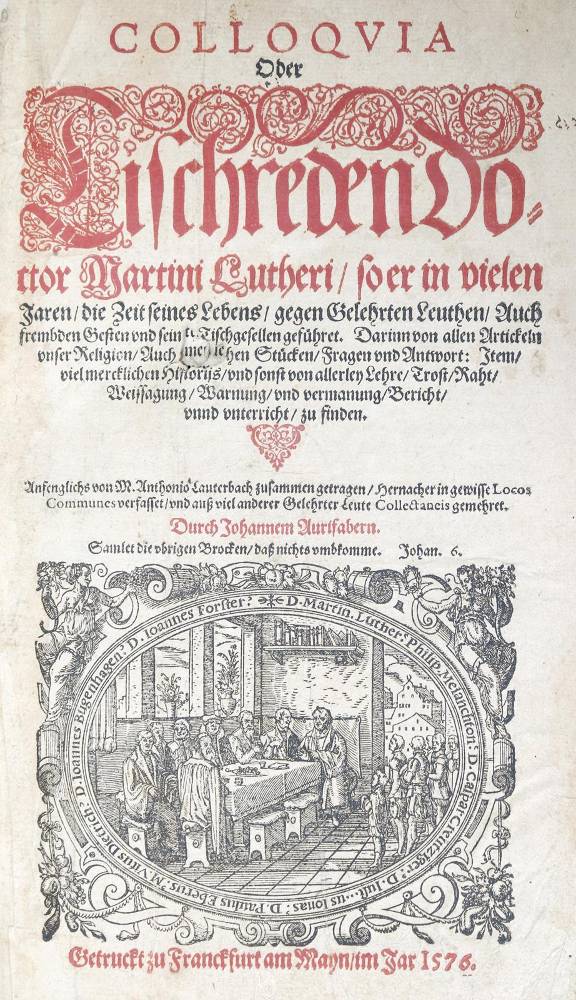 COLLOQVIA
Oder
Tischreden Do-
ctor Martini Lutheri / so er in vielen
Jaren / die Zeit seines Lebens / gegen Gelehrten Leuthen / Auch
frembden Gesten vnd seinen Tischgesellen geführet. Darinn von allen Artickeln
vnser Religion / Auch hen Stücken / Fragen vnd Antwort: Item /
viel mercklichen Historijs / vnd sonst von allerley Lehre / Trost / Raht /
Weissagung / Warnung / vnd vermanung / Bericht /
vnnd vnterricht / zu finden.
Anfenglichs von M. Anthonio Lauterbach zusammen getragen / Hernacher in gewisse Locos
Communes verfasset / vnd auß viel anderer Gelehrter Leute Collectaneis gemehret.
Durch Johannem Aurifabern.
Samlet die vbrigen Brocken / daß nichts vmbkomme. Johan. 6.
D. Martin. Luther: Philip. Melanchton: D. Caspar Creutziger: D. Just us Ionas: D. Paulus Eberus: M. Vitus Dietrich: D. Ioannes Bugenhagen: D. Ioannes Forster:
Getruckt zu Franckfurt am Mayn / im Jar 1576.